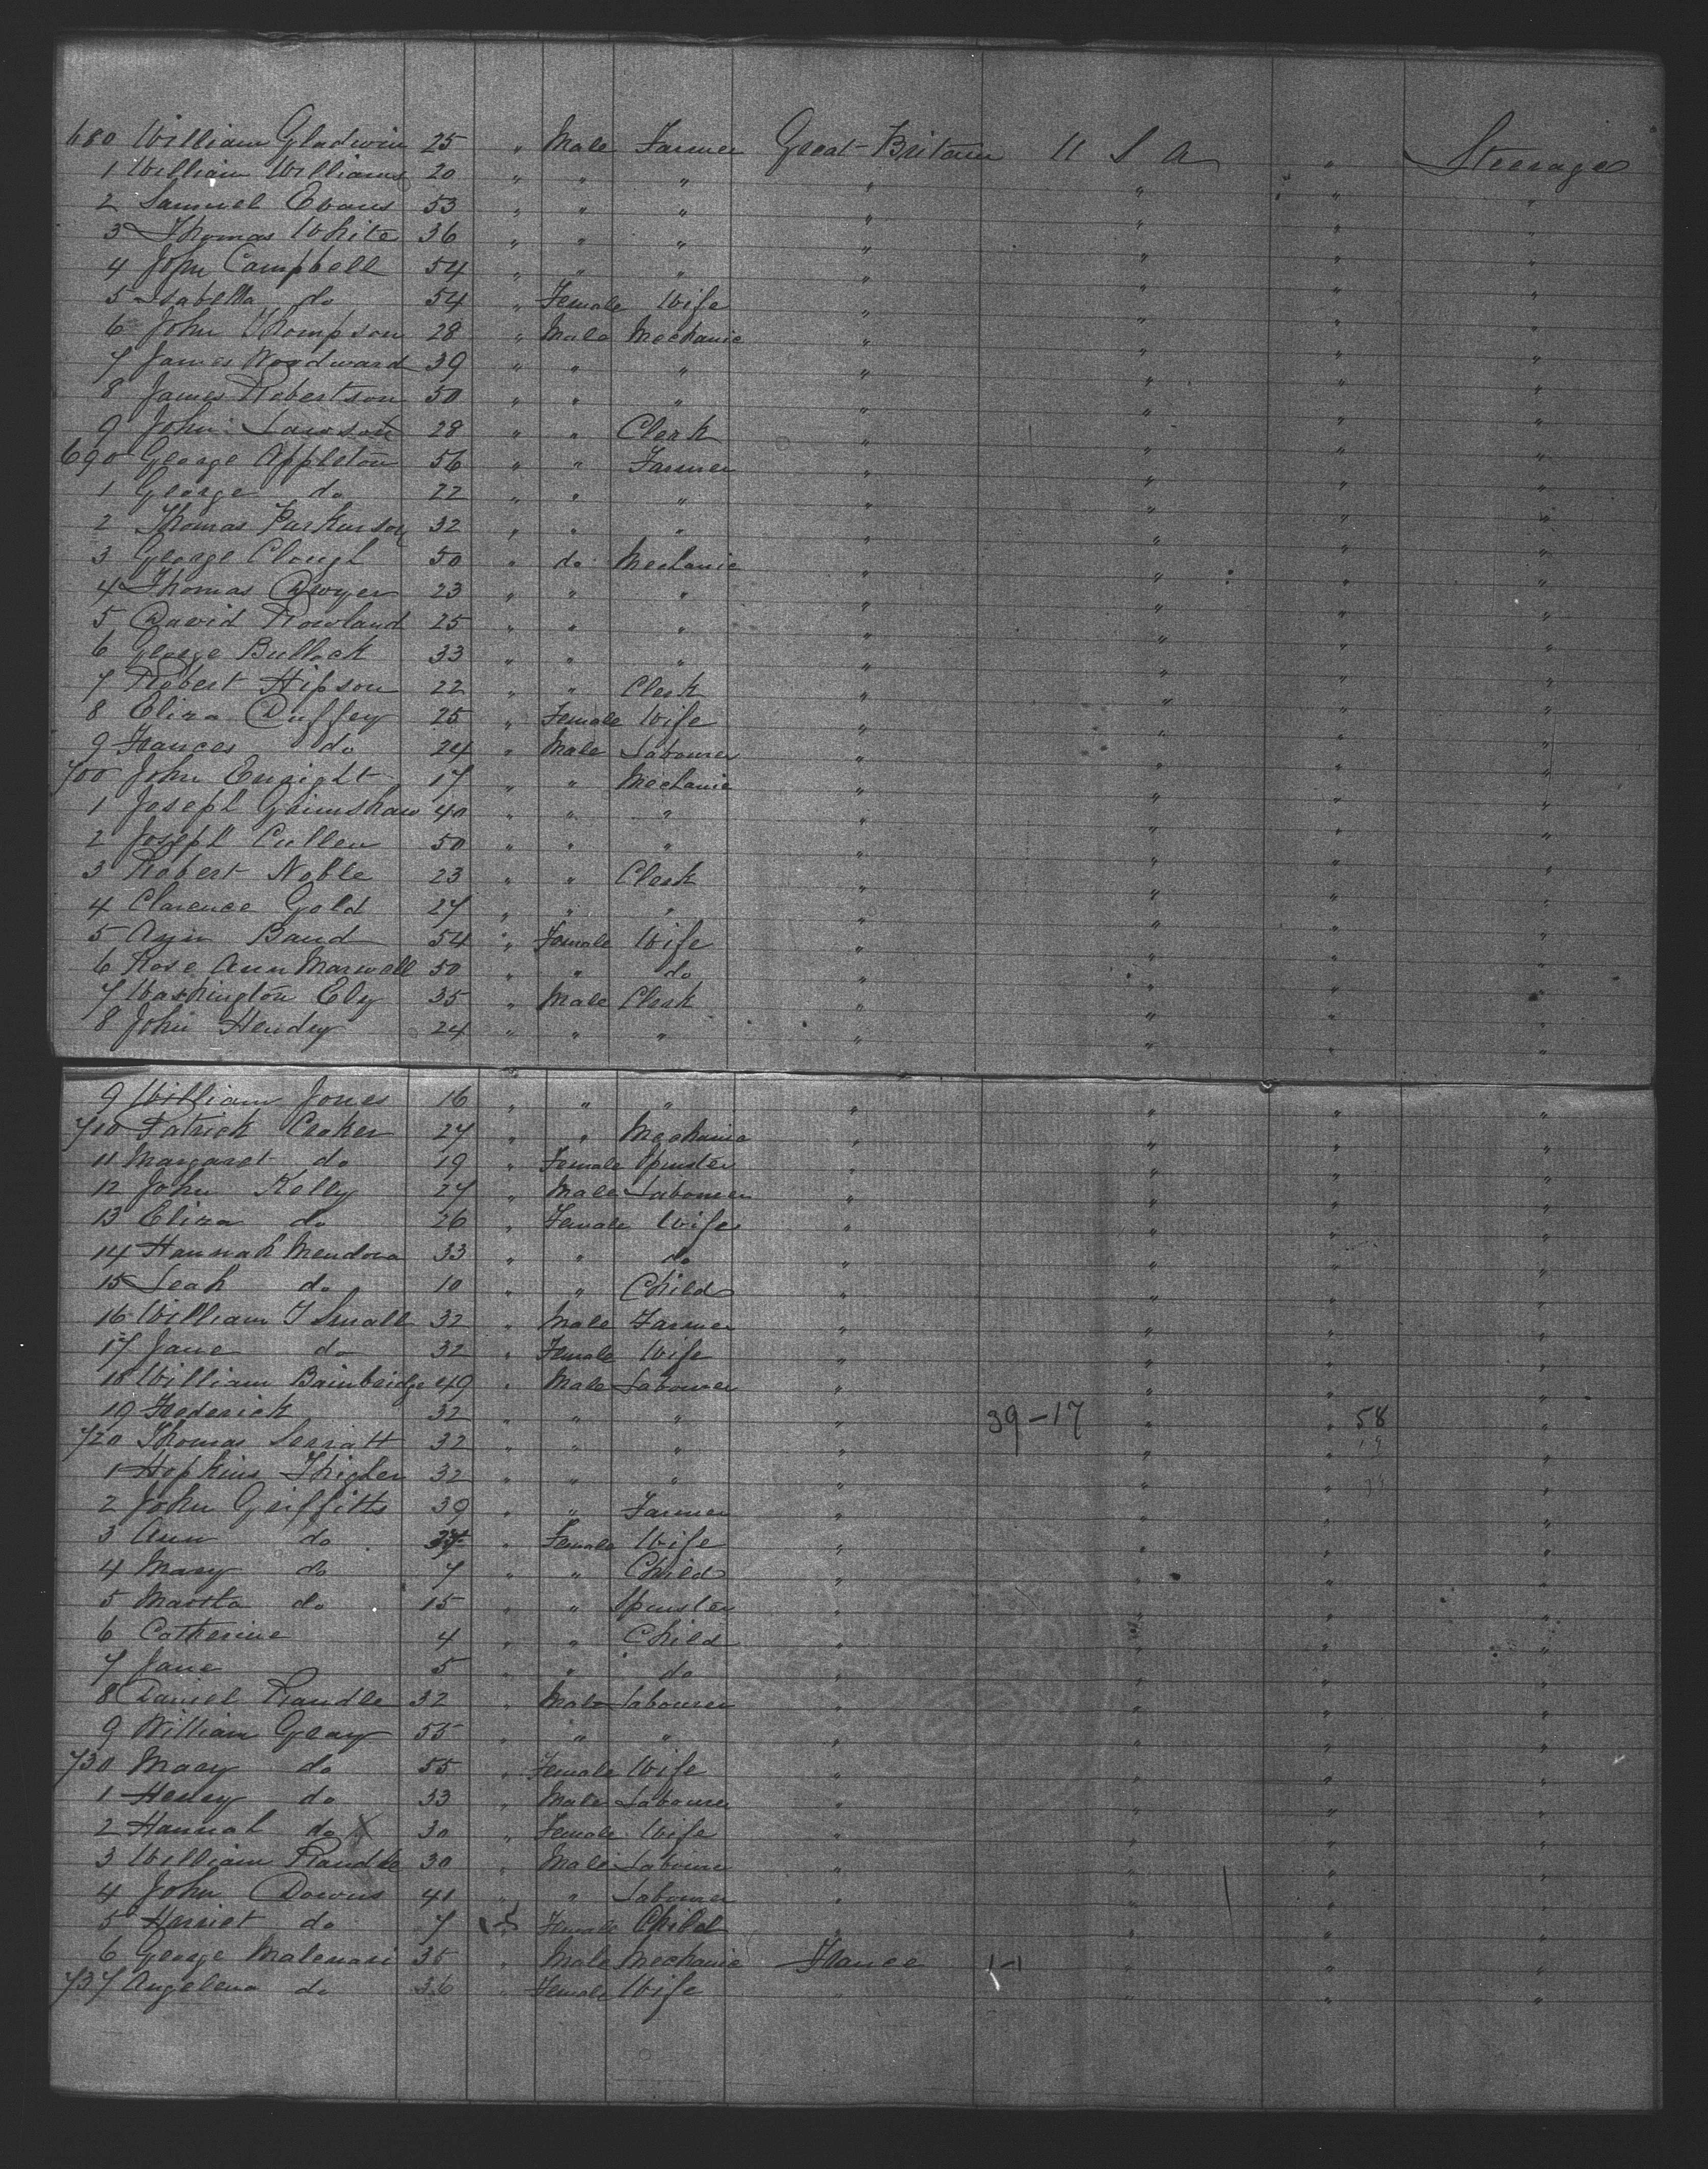 680 William Gladwin 25 " Male Farmer Great Britain U S A " Steerage
1 William Williams 20 " " " " " " "
2 Samuel Evans 53 " " " " " " "
3 Thomas White 36 " " " " " " "
4 John Campbell 54 " " " " " " "
5 Isabella do 54 " Female Wife " " " "
6 John Thompson 28 " Male Mechanic " " " "
7 James Woodward 39 " " " " " " "
8 James Robertson 50 " " " " " " "
9 John Lawson 28 " " Clerk " " " "
690 George Appleton 56 " " Farmer " " " "
1 George do 22 " " " " " " "
2 Thomas Parkinson 32 " " " " " " "
3 George Clough 50 " do Mechanic " " " "
4 Thomas Dwyer 23 " " " " " " "
5 David Rowland 25 " " " " " " "
6 George Bullock 33 " " " " " " "
7 Robert Hipson 22 " " Clerk " " " "
8 Eliza Duffey 25 " Female Wife " " " "
9 Frances do 24 " Male Labourer " " " "
700 John Enright 17 " " Mechanic " " " "
1 Joseph Grimshaw 40 " " " " " " "
2 Joseph Cullen 50 " " " " " " "
3 Robert Noble 23 " " Clerk " " " "
4 Clarence Gold 27 " " " " " " "
5 Baud 54 " Female Wife " " " "
6 Rose Ann Maxwell 50 " " do " " " "
7 Washington Ely 35 " Male Clerk " " " "
8 John Hendry 24 " " " " " " "
9 William Jones 16 " " " " " " "
710 Patrick Croker 27 " " Mechanic " " " "
11 Margaret do 19 " Female Spinster " " " "
12 John Kelly 27 " Male Labourer " " " "
13 Eliza do 26 " Female Wife " " " "
14 Hannah Mendoza 33 " " do " " " "
15 Leah do 10 " " Child " " " "
16 William T Small 32 " Male Farmer " " " "
17 Jane do 32 " Female Wife " " " "
18 William Bainbridge 49 " Male Labourer " " " "
19 Frederick 32 " " " " 39-17 " " 58 "
720 Thomas 32 " " " " " " "
1 Hopkins 32 " " " " " " "
2 John Griffiths 39 " " Farmer " " " "
3 Ann do " Female Wife " " " "
4 Mary do 7 " " Child " " " "
5 Martha do 15 " " Spinster " " " "
6 Catherine 4 " " Child " " " "
7 Jane 5 " " do " " " "
8 Daniel Randle 32 " Male Labourer " " " "
9 William Gray 55 " " " " " " "
730 Mary do 55 " Female Wife " " " "
1 Henry do 33 " Male Labourer " " " "
2 Hannah do X 30 " Female Wife " " " "
3 William Randle 30 " Male Labourer " " " "
4 John Downs 41 " " Labourer " " " "
5 Harriet do 7 Female Child " " " "
6 George Malenari 35 " Male Mechanic France 1-1 " " "
737 Angelena do 36 " Female Wife " " " "